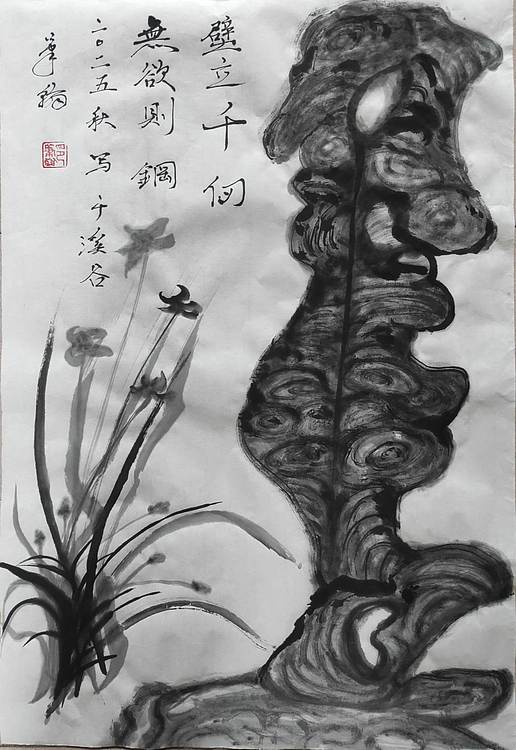 壁立千仞
無欲則鋼
二〇二五秋写于溪谷